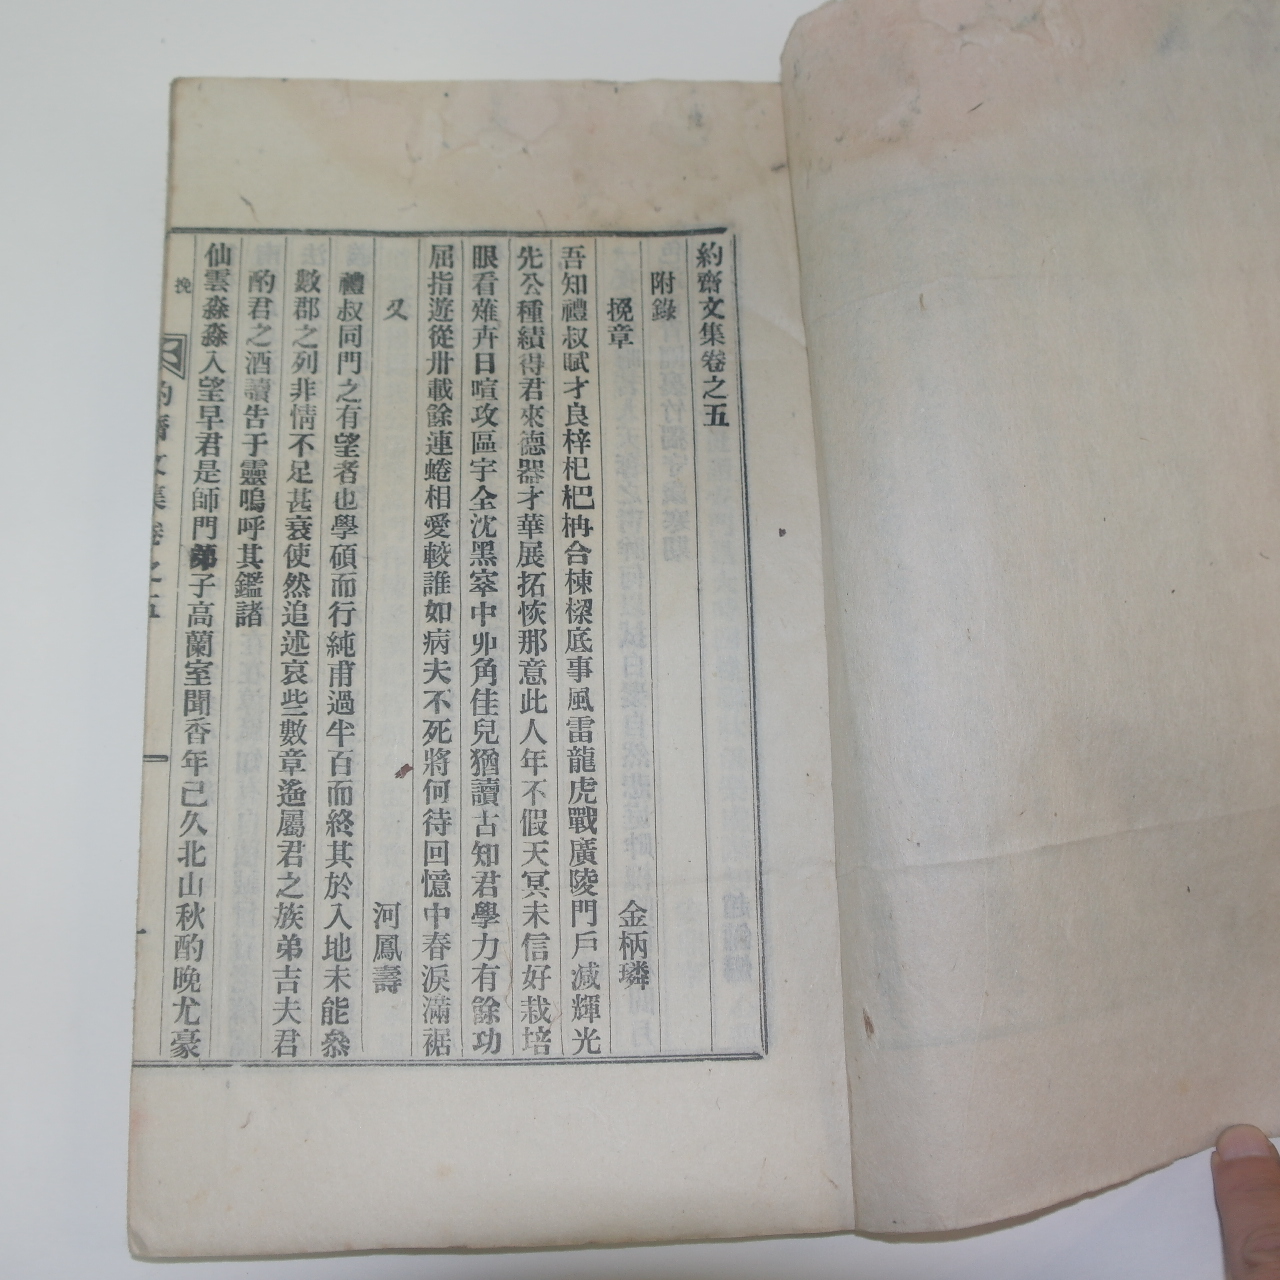 約齋文集卷之五
附錄
挽章
金柄璘
吾知禮叔賦才良梓杞杷枏合棟樑底事風雷龍虎戰廣陵門戶减輝光
先公種績得君來德器才華展拓恢那意此人年不假天冥未信好栽培
眼看薙卉日喧攻區宇全沈黑窣中丱角佳兒猶讀古知君學力有餘功
屈指遊從卅載餘連蜷相愛較誰如病夫不死將何待回憶中春淚滿裾
又
河鳳壽
禮叔同門之有望者也學碩而行純甫過半百而終其於入地未能叅
數郡之列非情不足甚衰使然追述哀些數章遙屬君之族弟吉夫君
酌君之酒讀告于靈嗚呼其鑑諸
仙雲淼淼入望早君是師門弟子高蘭室聞香年已久北山秋酌晚尤豪
挽
約齋文集卷之五
一